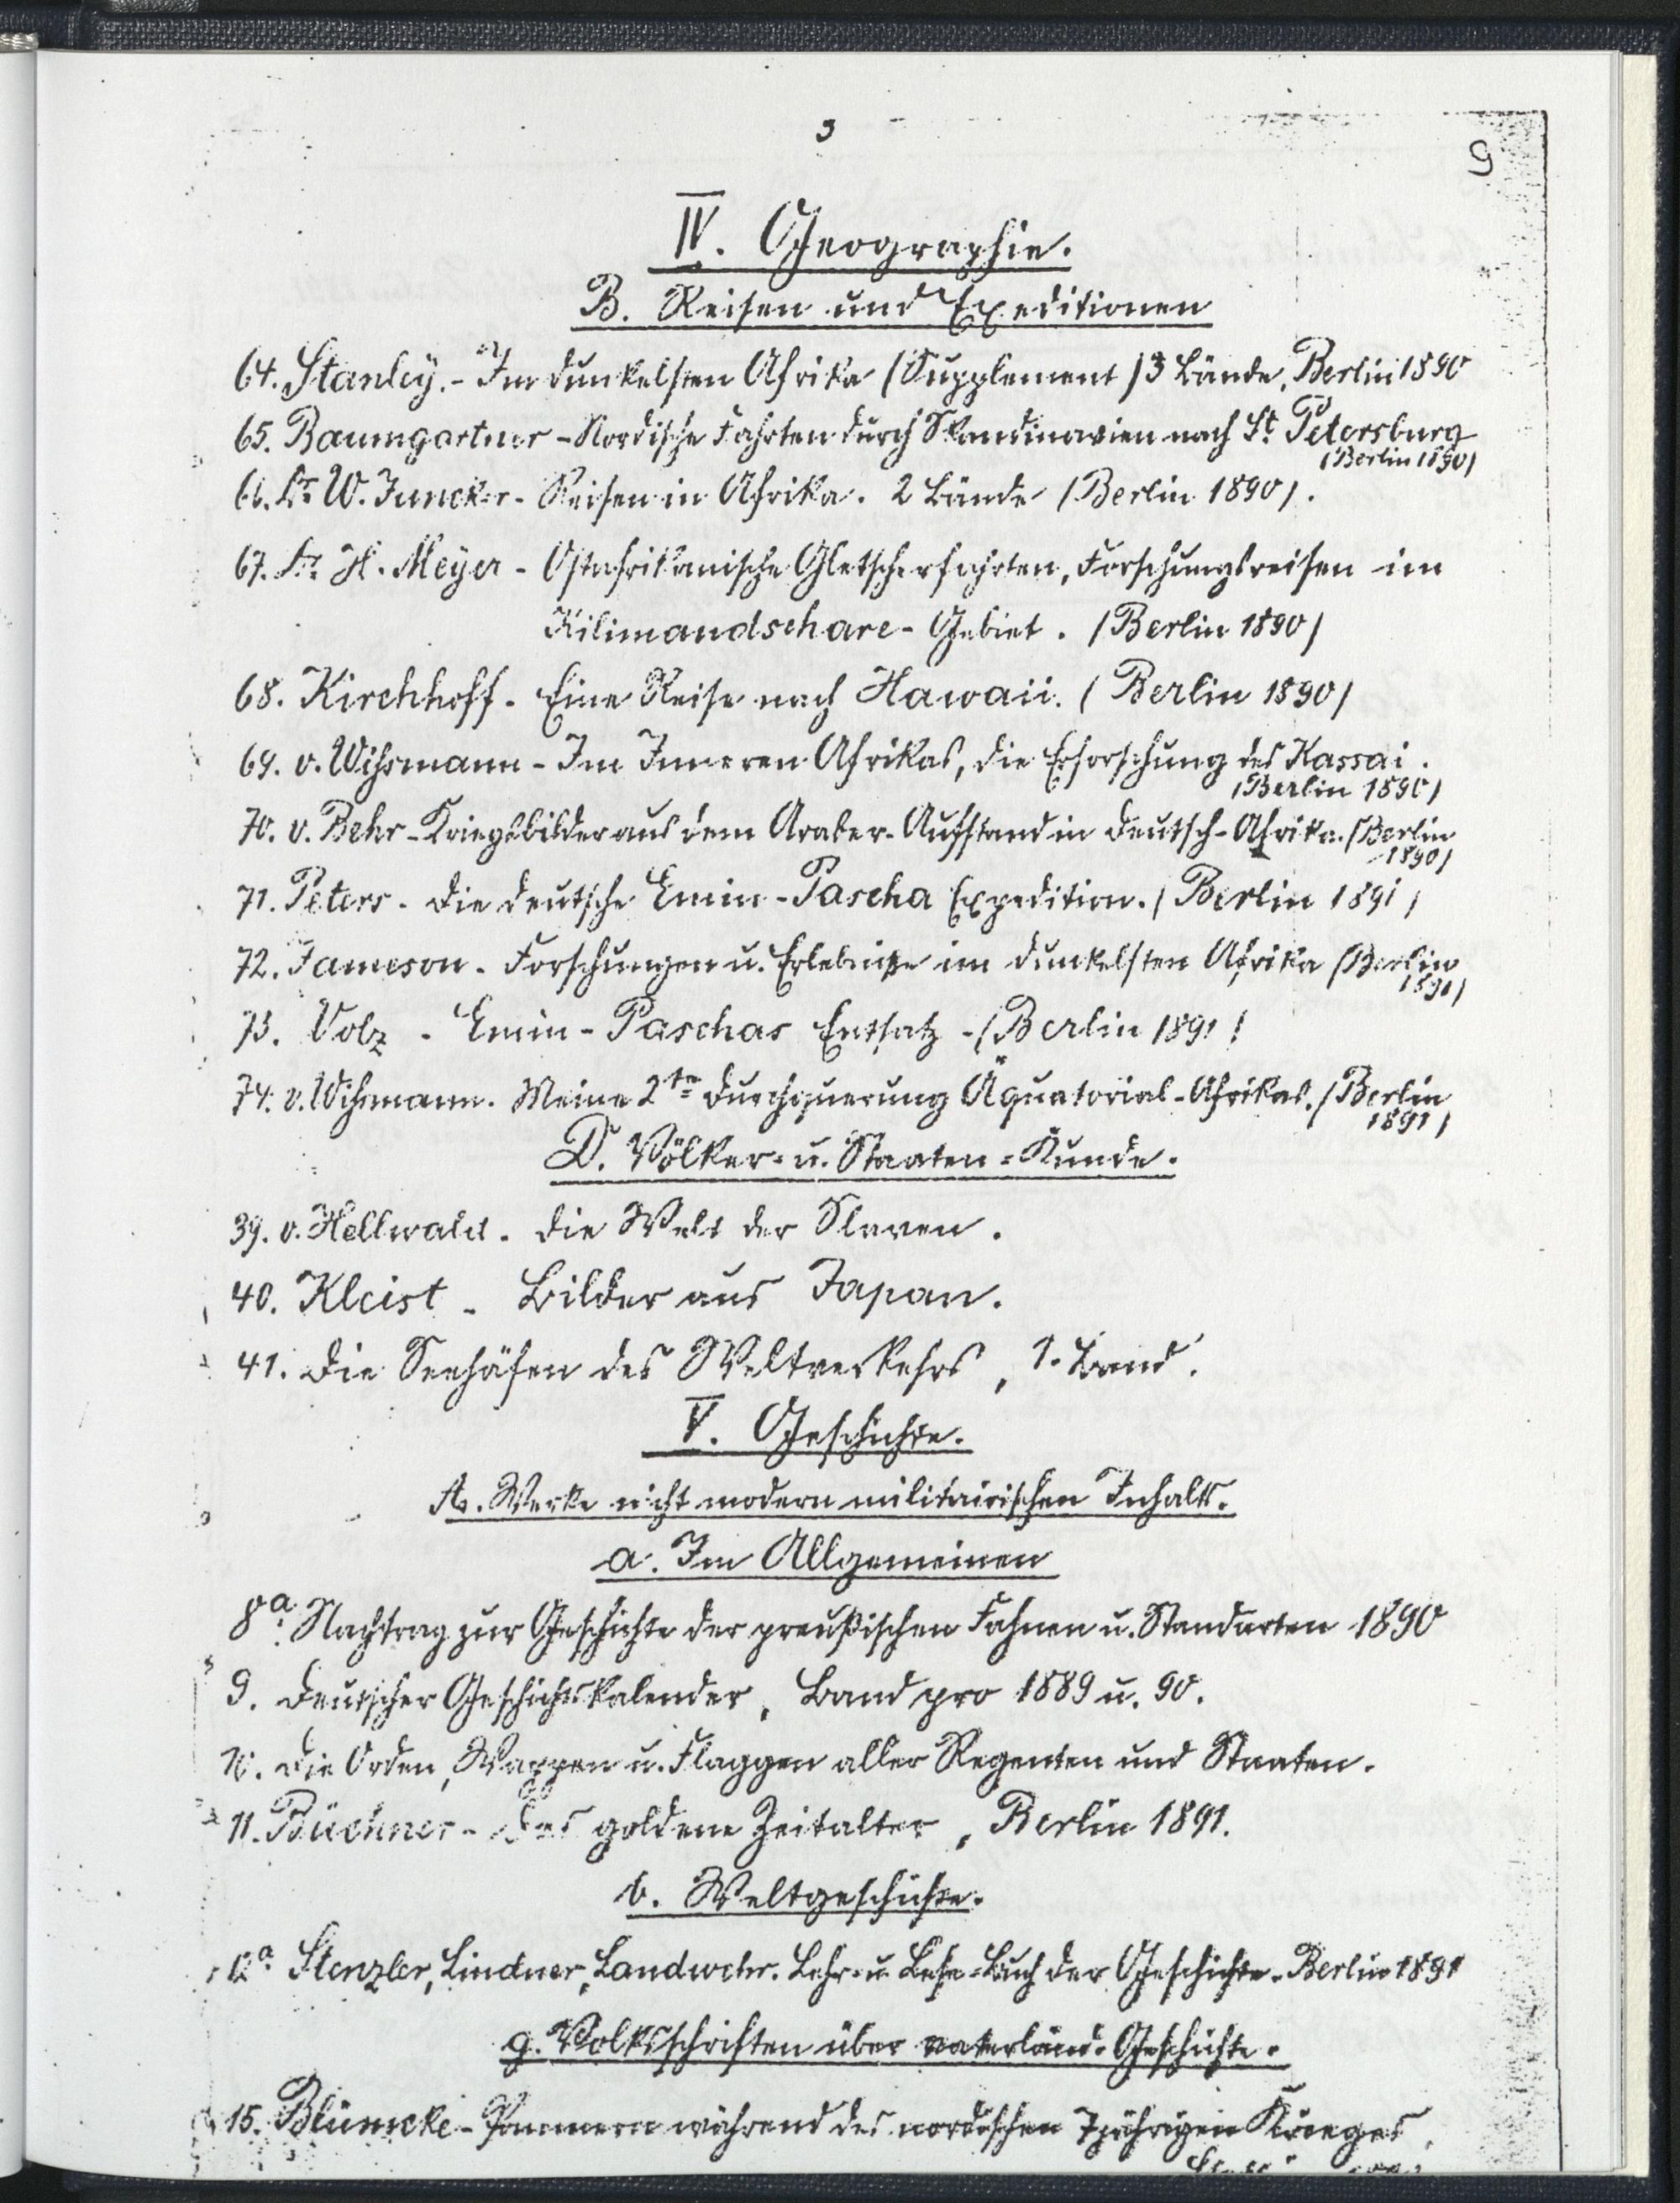 9
IV. Geographie.
B. Reisen und Expeditionen
64. Stanley. - Im dunkelsten Afrika (Supplement) 3 Bände, Berlin 1890
65. Baumgartner - Nordische Fahrten durch Skandinavien nach St. Petersburg
(Berlin 1890)
66. Dr. W. Juncker - Reisen in Afrika. 2 Bände (Berlin 1890).
67. Dr. H. Meyer - Ostafrikanische Gletscherfahrten, Forschungsreisen im
Kilimandschare - Gebiet. (Berlin 1890)
68. Kirchhoff - Eine Reise nach Hawaii. (Berlin 1890)
69. v. Wißmann - Im Inneren Afrikas, die Erforschung des Kassai.
(Berlin 1890)
70. v. Behr - Kriegsbilder aus dem Araber-Aufstand in Deutsch-Afrika. (Berlin
1890)
71. Peters - Die deutsche Emin-Pascha Expedition. (Berlin 1891)
72. Jameson - Forschungen u. Erlebniße im dunkelsten Afrika (Berlin
1891)
73. Volz - Emin-Paschas Entsatz - (Berlin 1891)
74. v. Wißmann. Meine 2te Durchquerung Äquatorial-Afrikas. (Berlin
1891)
D. Völker- u. Staaten-Kunde.
39. v. Hellwald - Die Welt der Slaven.
40. Kleist - Bilder aus Japan.
41. Die Seehäfen des Weltverkehrs, 1. Band.
V. Geschichte.
A. Werke nicht modern militairischen Inhalts.
a. Im Allgemeinen
8a. Nachtrag zur Geschichte der preußischen Fahnen u. Standarten 1890
9. Deutscher Geschichtskalender, Band pro 1889 u. 90.
10. Die Orden, Wappen u. Flaggen aller Regenten und Staaten.
11. Büchner - Das goldene Zeitalter, Berlin 1891.
b. Weltgeschichte.
12a. Stenzler, Lindner, Landwehr. Lehr- u. Lese-Buch der Geschichte. Berlin 1891
g. Volksschriften über vaterländ. Geschichte.
15. Blümcke - Pommern während des nordischen 7jährigen Krieges,